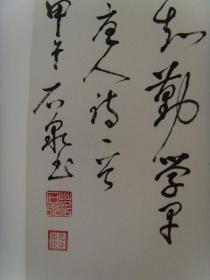 知勤学早
唐人诗一首
甲午石泉书